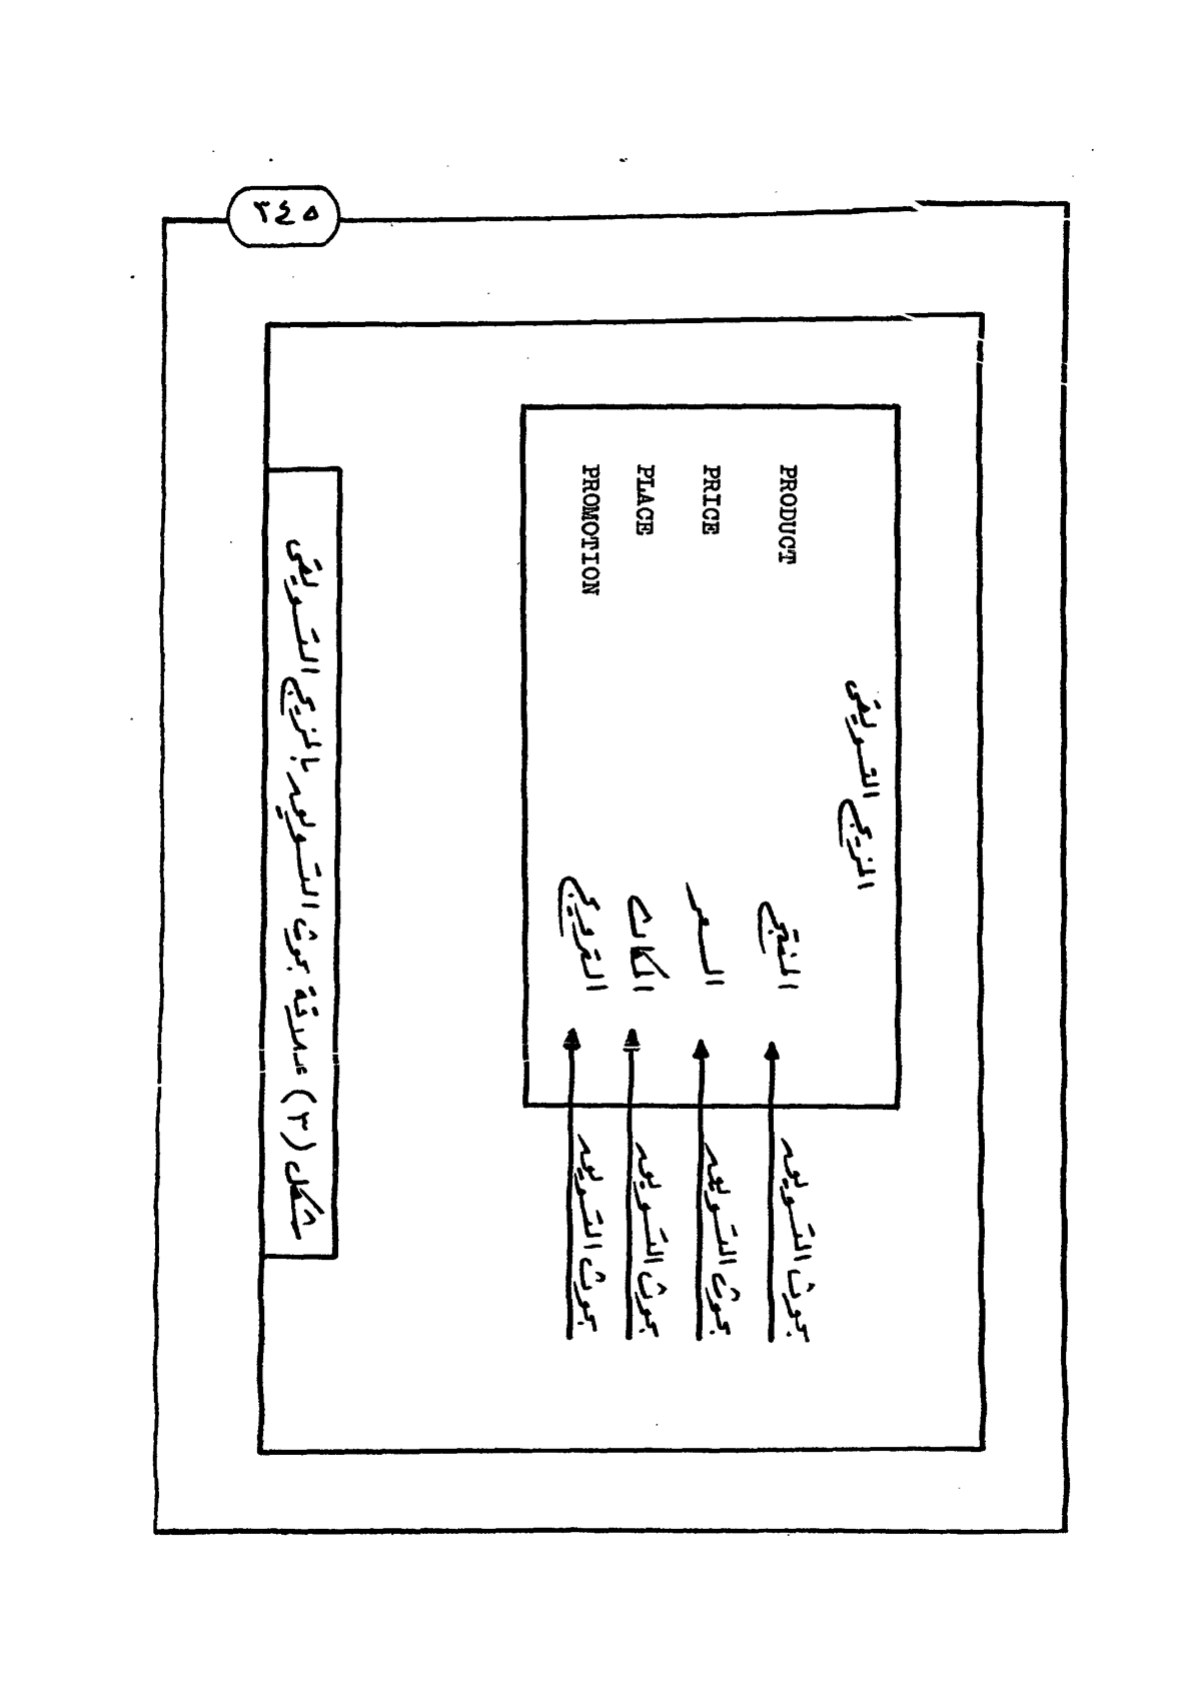 ٢٤٥
المزيج التسويقى
بحوث التسويق المنتج PRODUCT
بحوث التسويق السعر PRICE
بحوث التسويق المكان PLACE
بحوث التسويق الترويج PROMOTION
شكل (٣) علاقة بحوث التسويق بالمزيج التسويقى